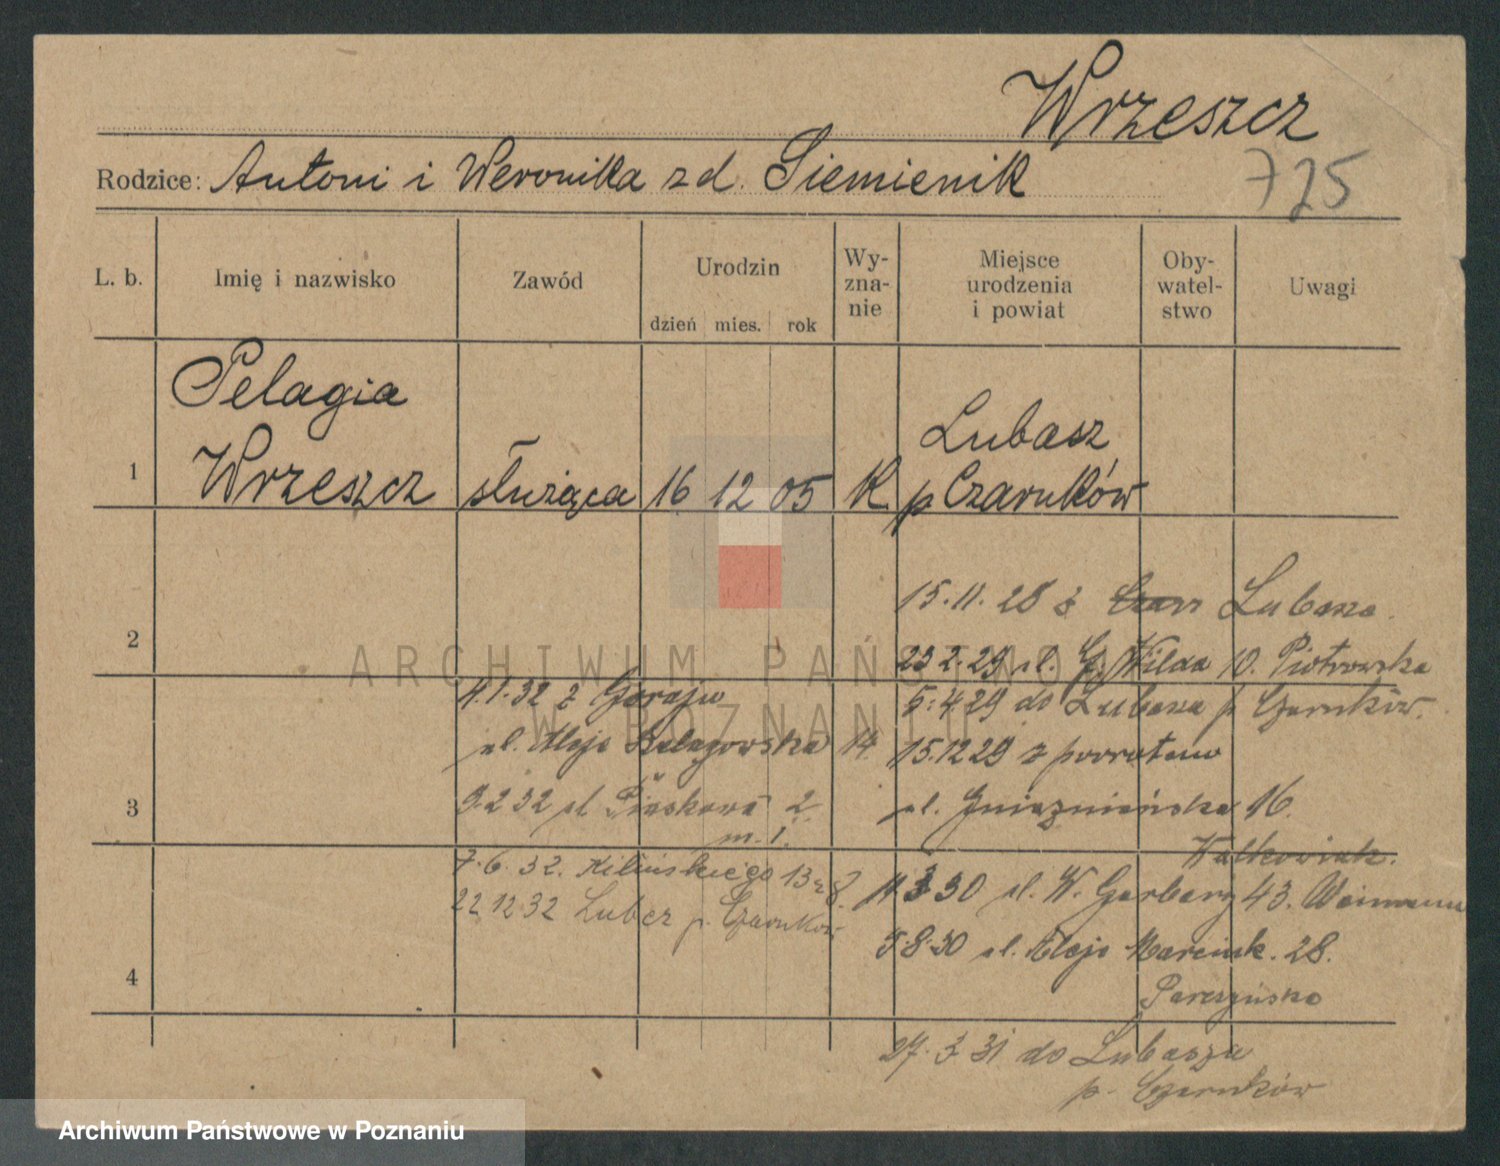 Wrzeszcz
Rodzice: Antoni i Weronika zd. Siemienik
725
L. b. Imię i nazwisko Zawód Urodzin dzień mies. rok Wy-zna-nie Miejsce urodzenia i powiat Oby-watel-stwo Uwagi
Pelagia
Lubasz
1 Wrzeszcz służąca 16 12 05 K. p Czarnków
15.11.28 z Lubasza.
2
23 2.29 ul. G. Wilda 10. Piotrowska
5.4.29 do Lubasza p Czarnków.
15.12.29 z powrotem
ul. Gnieźnieńska 16.
Walkowiak.
3 30 ul. W. Garbary 43.
5.8.30 ul. Aleje Marcink. 28.
27.3 31 do Lubasza
p. Czarnków
4.1.32 z Goraju
ul. Aleje 14
3
9.2 32 ul Piaskowa 2
m. 1.
7.6.32. Kilińskiego 13
22 12 32 p. Czarnków
4
ARCHIWUM PAŃSTWOWE
W POZNANIU
Archiwum Państwowe w Poznaniu